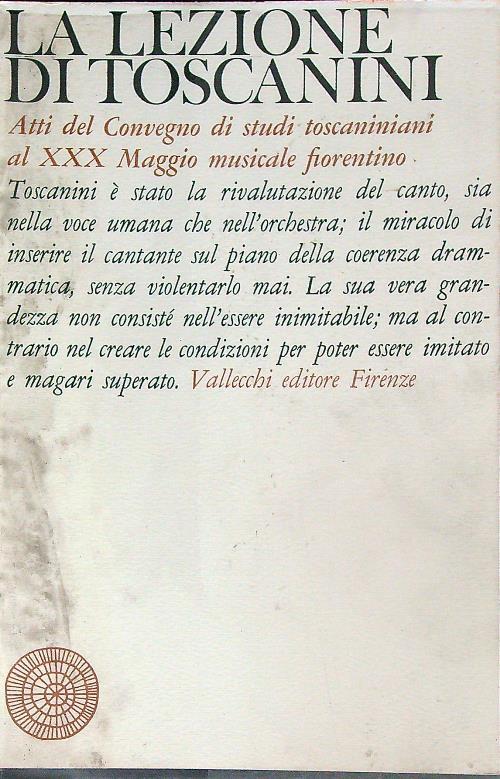 LA LEZIONE
DI TOSCANINI
Atti del Convegno di studi toscaniniani
al XXX Maggio musicale fiorentino
Toscanini è stato la rivalutazione del canto, sia
nella voce umana che nell'orchestra; il miracolo di
inserire il cantante sul piano della coerenza dram-
matica, senza violentarlo mai. La sua vera gran-
dezza non consisté nell'essere inimitabile; ma al con-
trario nel creare le condizioni per poter essere imitato
e magari superato. Vallecchi editore Firenze